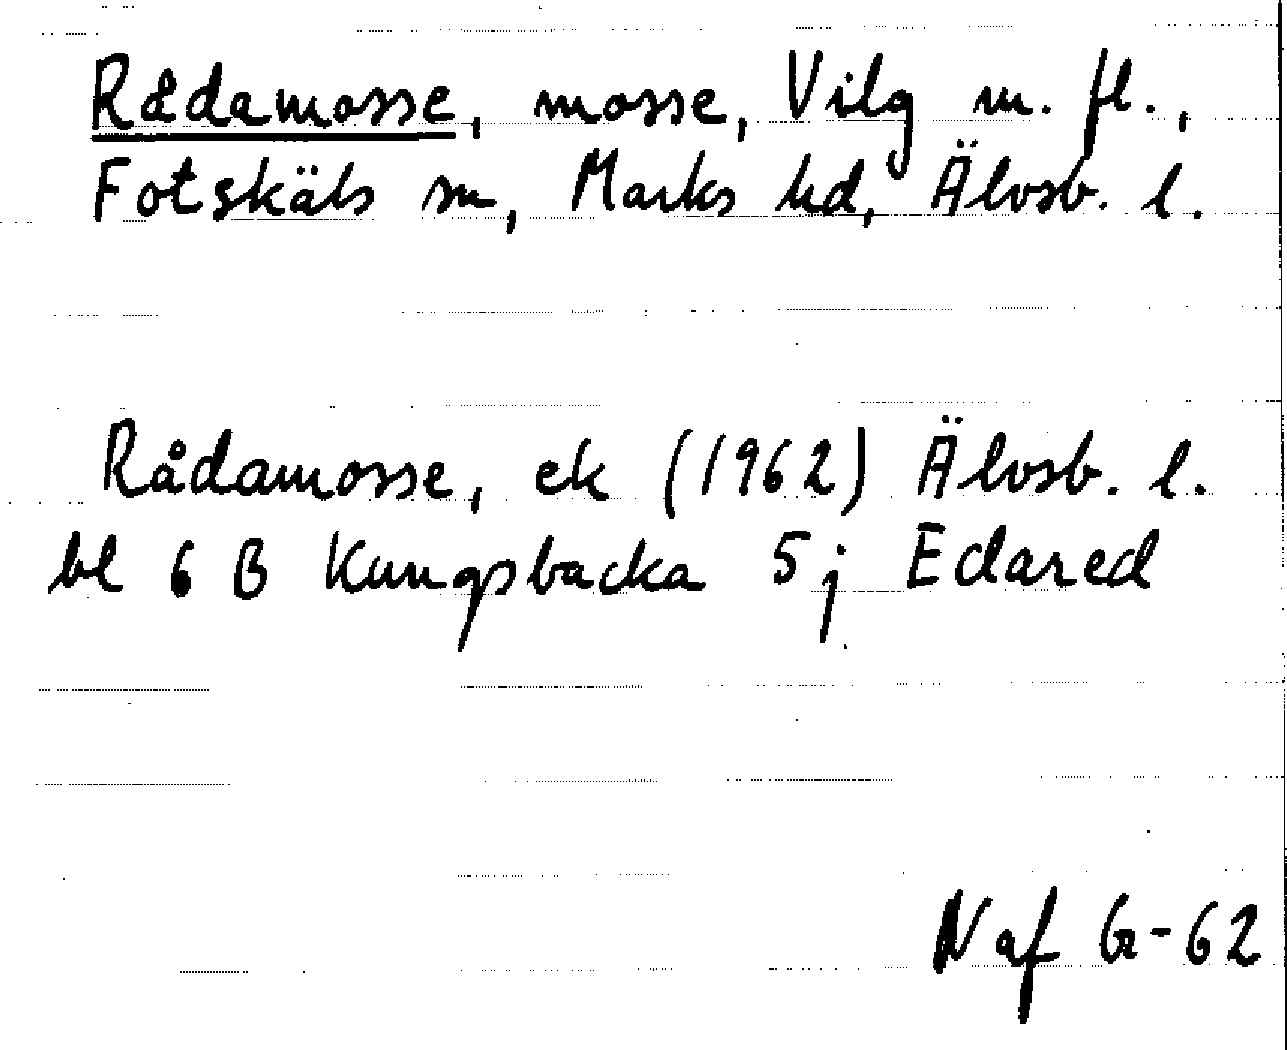 Rådamosse, mosse, Vilg m. fl.,
Fotskäls sn, Marks hd, Älvsb. l.
Rådamosse, ek (1962) Älvsb. l.
bl 6 B Kungsbacka 5 j Edared
N af G-62